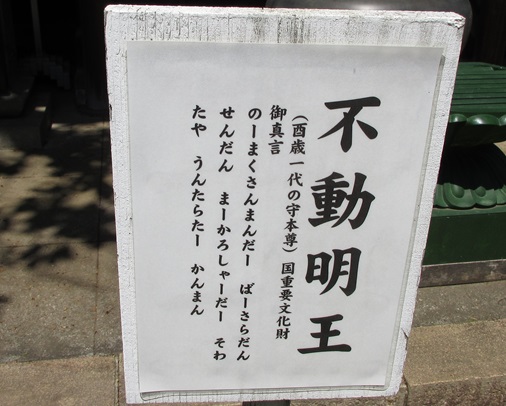 不動明王
（酉歳一代の守本尊）国重要文化財
御真言
のーまくさんまんだー　ばーさらだん
せんだん　まーかろしゃーだー　そわ
たや　うんたらたー　かんまん